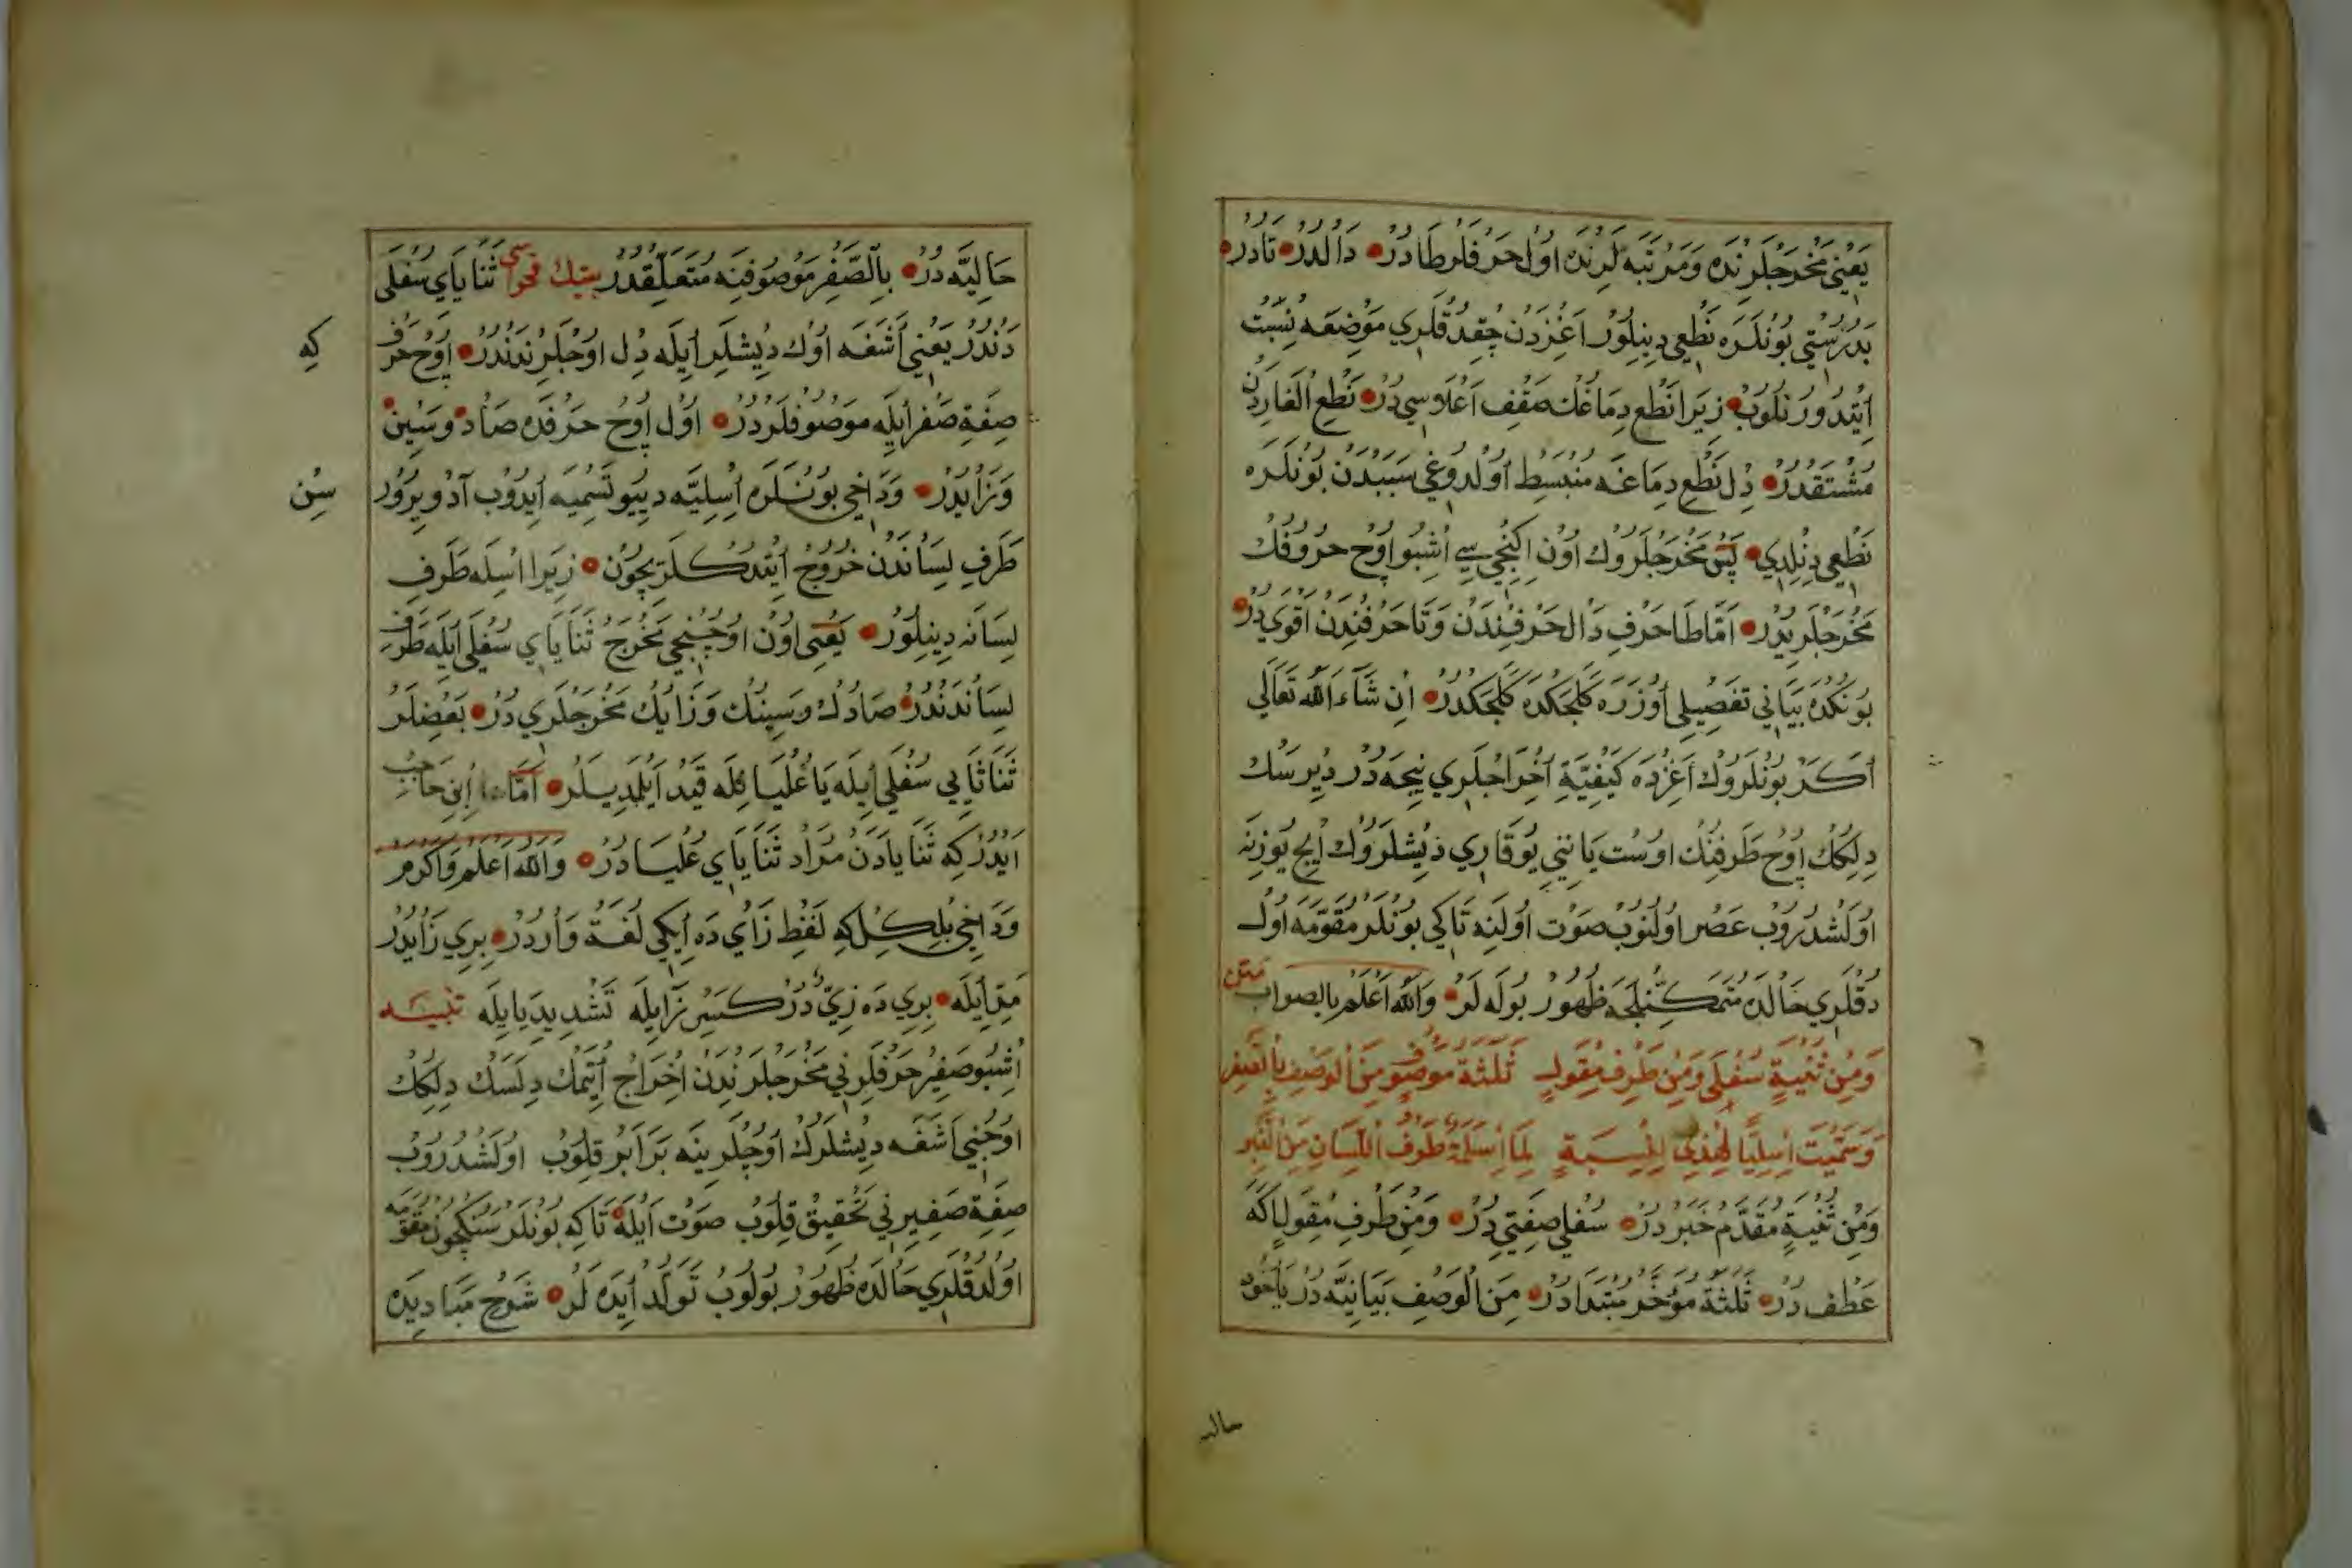 يَعْنِي مَخْرَجْلَرِنْدَه وَمَرْتَبَه لَرِنْدَه اوَّلْ حَرْفْلَرْ طَادُرْ دَالْدُرْ تَادُرْ
بَدُرُسْتِي بُونْلَرَه نَطْعِي دِينِلُورْ اَغِزْدَنْ چِقْدُقْلَرِي مَوْضِعَه نِسْبَتْ
اِيتْدُورُنْلُوبْ زِيرَا نَطْعِ دِمَاغُكْ سَقْفِ اَعْلَاوسِي دُرْ نَطْعِ الْغَارِدَنْ
مُشْتَقْدُرْ دِلْ نَطْعِ دِمَاغَه مُنْبَسِطْ اُولْدُوغِي سَبَبْدَنْ بُونْلَرَه
نَطْعِي دِنِلْدِي پَسْ مَخْرَجْلَرُوكْ اُونْ اِكِنْجِي سِي اُشْبُو اُوچْ حُرُوفُكْ
مَخْرَجْلَرِيدُرْ اَمَّا طَا حَرْفِ دَالْ حَرْفِنْدَنْ وَتَا حَرْفِنْدَنْ اَقْوَي دُرْ
بُونْكْدَه بَيَانِي تَفْصِيلِي اُوزَرَه كَلِجَكْدَه كَلِجَكْدُرْ اِنْ شَآءَ اللّٰه تَعَالَي
اَكَرْ بُونْلَرُوكْ اَغِزْدَه كَيْفِيَّةِ اِخْرَاجْلَرِي نِيجَه دُرْ دِيرْسَكْ
دِلُكُكْ اُوچْ طَرَفِنُكْ اُوسْتْ يَانِنِي يُوقَارِي دِيشْلَرُوكْ اِيچْ يُوزِنَه
اُولَشْدُرُوبْ عَصْر اُولْنُوبْ صَوْت اُولْنَه تَاكِي بُونْلَرْ مُقَوَّمَه اُولْ
دُقْلَرِي حَالْدَه مُتَمَكِّنْلِجَه ظُهُورْ بُولَه لَرْ وَاللّٰه اَعْلَمْ بِالصواب متن
وَمِنْ ثَنِيَّةٍ سُفْلَى وَمِنْ طَرَفٍ مِقْوَلٍ ثَلٰثَةٌ مَوْصُوفٍ مِنَ الْوَصْفِ بِالصَّفِيرِ
وَسُمِّيَتْ اَسْلِيًّا لِهٰذِي لِنِسْبَةٍ لِمَا اَسَلَةٌ طَرَفُ اللِّسَانِ مِنَ الْغَيْرِ
وَمِنْ ثَنِيَّةٍ مُقَدَّمْ خَبَرْ دُرْ سُفْلِي صِفَتِي دُرْ وَمِنْ طَرَفِ مِقْوَلٍ اكَه
عَطْفْ دُرْ ثَلٰثَةٌ مُؤَخَّرْ مُبْتَدَا دُرْ مِنَ الْوَصْفِ بَيَانِيَّه دُرْ يَاخُودْ
حاليه
حَالِيَّه دُرْ بِالصَّفِيرِ مَوْصُوفِنَه مُتَعَلِّقْدُرْ بيتك فحواسى ثَنَايَاي سُفْلَى
دَنْدُرْ يَعْنِي اَشَغَه اُوكْ دِيشْلَرِ اِيلَه دِلْ اُوجْلَرِنْدَنْدُرْ اُوچْ حَرْفْ
كِه
صِفَةِ صَفِيرْ اِيلَه مَوْصُوفْلَرْدُرْ اُولْ اُوچْ حَرْفْدَه صَادْ وسِينْ
وَزَايْدُرْ وَدَاخِي بُونْلَرَه اَسَلِيَّه دِييُو تَسْمِيَه اِيدُوبْ آدْ وِيرُورْ
سِنْ
طَرَفِ لِسَانْدَنْ خُرُوجْ اِيتْدُكْلَرِيچُونْ زِيرَا اَسَلَه طَرَفِ
لِسَانَه دِينِلُورْ يَعْنِي اُونْ اُوچُنْجِي مَخْرَجْ ثَنَايَاي سُفْلَى اِيلَه طَرَفِ
لِسَانْدَنْدُرْ صَادُكْ وسِينُكْ وَزَايُكْ مَخْرَجْلَرِي دُرْ بَعْضِلَرْ
ثَنَايَايِي سُفْلَى اِيلَه يَا عُلْيَا اِلَه قَيْدْ اَيْلَمَدِيلَرْ اَمَّا اِبْنِ حَاجِبْ
اَيْدُرْ كِه ثَنَايَادَنْ مُرَادْ ثَنَايَاي عُلْيَا دُرْ وَاللّٰه اَعْلَمْ وَاَكْرَمْ
وَدَاخِي بِلْكِلْ كِه لَفْظِ زَاي دَه اِيكِي لُغَة وَارْدُرْ بِرِي زَايْدُرْ
مَدِّ اِيلَه بِرِي دَه زِيّ دُرْ كَسْرِ زَا اِيلَه تَشْدِيدِ يَا اِيلَه تنبيه
اُشْبُو صَفِيرْ حَرْفْلَرِنِي مَخْرَجْلَرِنْدَنْ اِخْرَاجْ اِيتْمَكْ دِلَسَكْ دِلُكُكْ
اُوجِنِي اَشَغَه دِيشْلَرُكْ اُوجْلَرِينَه بَرَابَرْ قِلُوبْ اُولَشْدُرُوبْ
صِفَةِ صَفِيرِنِي تَحْقِيقْ قِلُوبْ صَوْت اَيْلَه تَاكِه بُونْلَرْ سَنِكْچُونْ مُقَوَّمَه
اُولْدُقْلَرِي حَالْدَه ظُهُورْ بُولُوبْ تَوَلُّدْ اَيْدَه لَرْ شَرْحِ مَبَادِيدَه